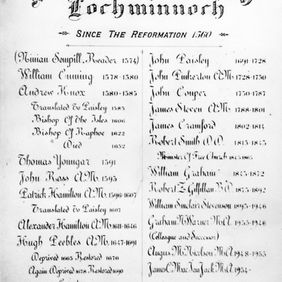 Lochwinnoch
SINCE THE REFORMATION 1560
(Ninian Sempill, Reader 1574)
William Cuming 1578-1580
Andrew Knox 1580-1585
Translated To Paisley 1585
Bishop Of the Isles 1606
Bishop Of Raphoe 1622
Died 1632
Thomas Youngar 1591
John Ross A.M. 1595
Patrick Hamilton A.M. 1596-1607
Translated To Paisley 1607
Alexander Hamilton A.M.
Hugh Peebles A.M. 1647-1691
Deprived 1665 Restored 1670
Again Deprived 1678 Restored 1690
John Paisley 1691-1728
John Pinkerton A.M. 1728-1750
John Couper 1750-1787
James Steven A.M. 1788-1801
James Crawford 1802-1814
Robert Smith D.D. 1815-1845
Minister Of Free Church
William Graham
Robert Z. Gilfillan B.D. 1875-1892
William Sinclair Stevenson 1893-1946
Graham N. Warner M.A. 1935-1946
(Colleague and Successor)
Angus M. Nicolson M.A. 1948-1953
James M.A. 1954-